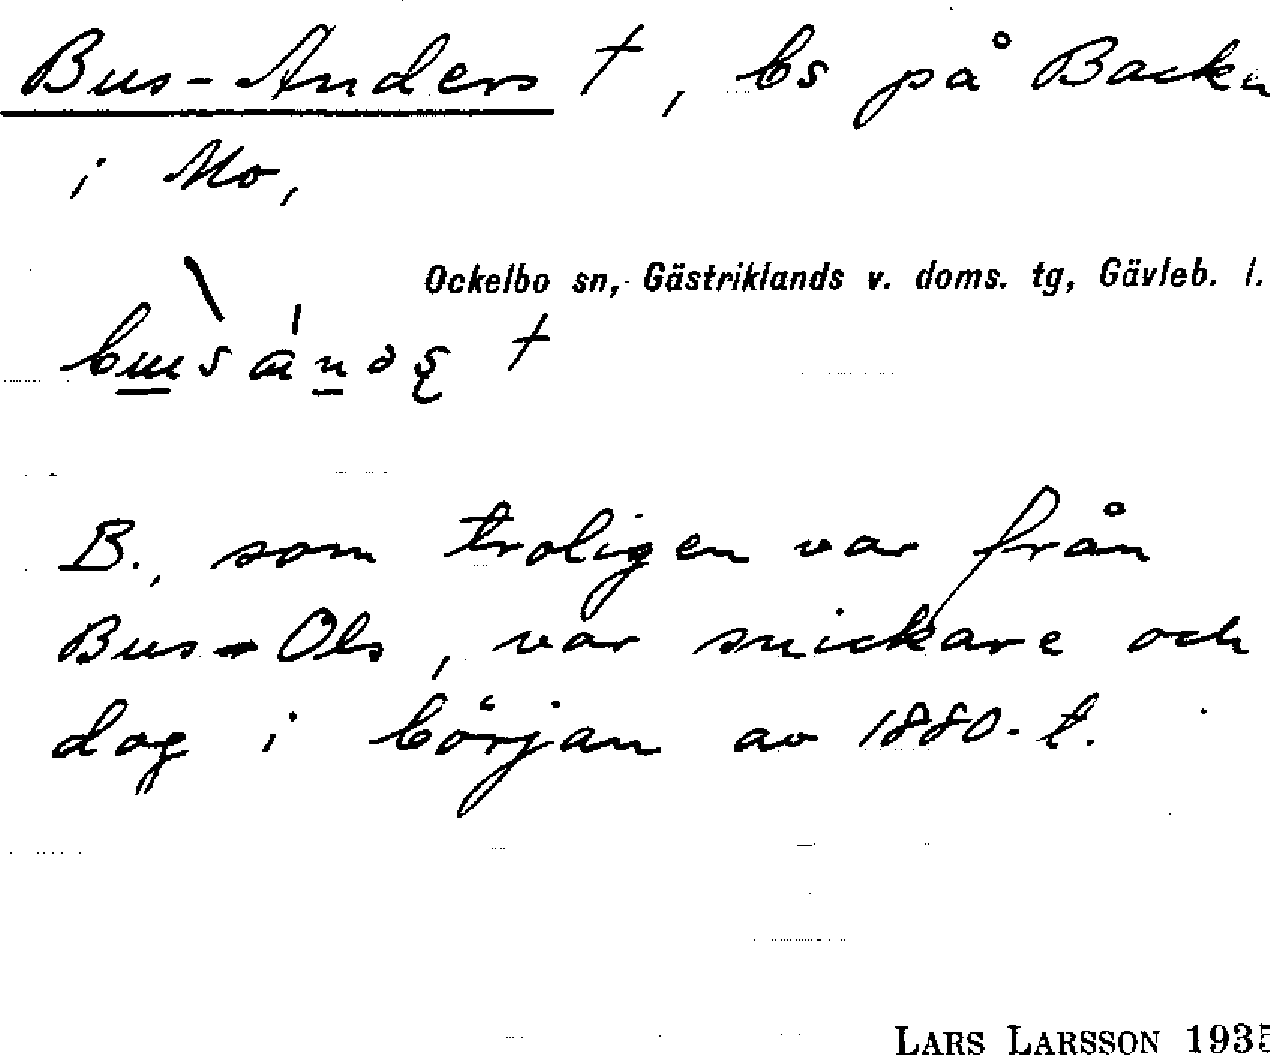 Bus-Anders †, bs på Backa
i Mo,
Ockelbo sn, Gästriklands v. doms. tg, Gävleb. l.
B., som troligen var från
Bus-Ols, var snickare och
dog i början av 1880-t.
LARS LARSSON 1935